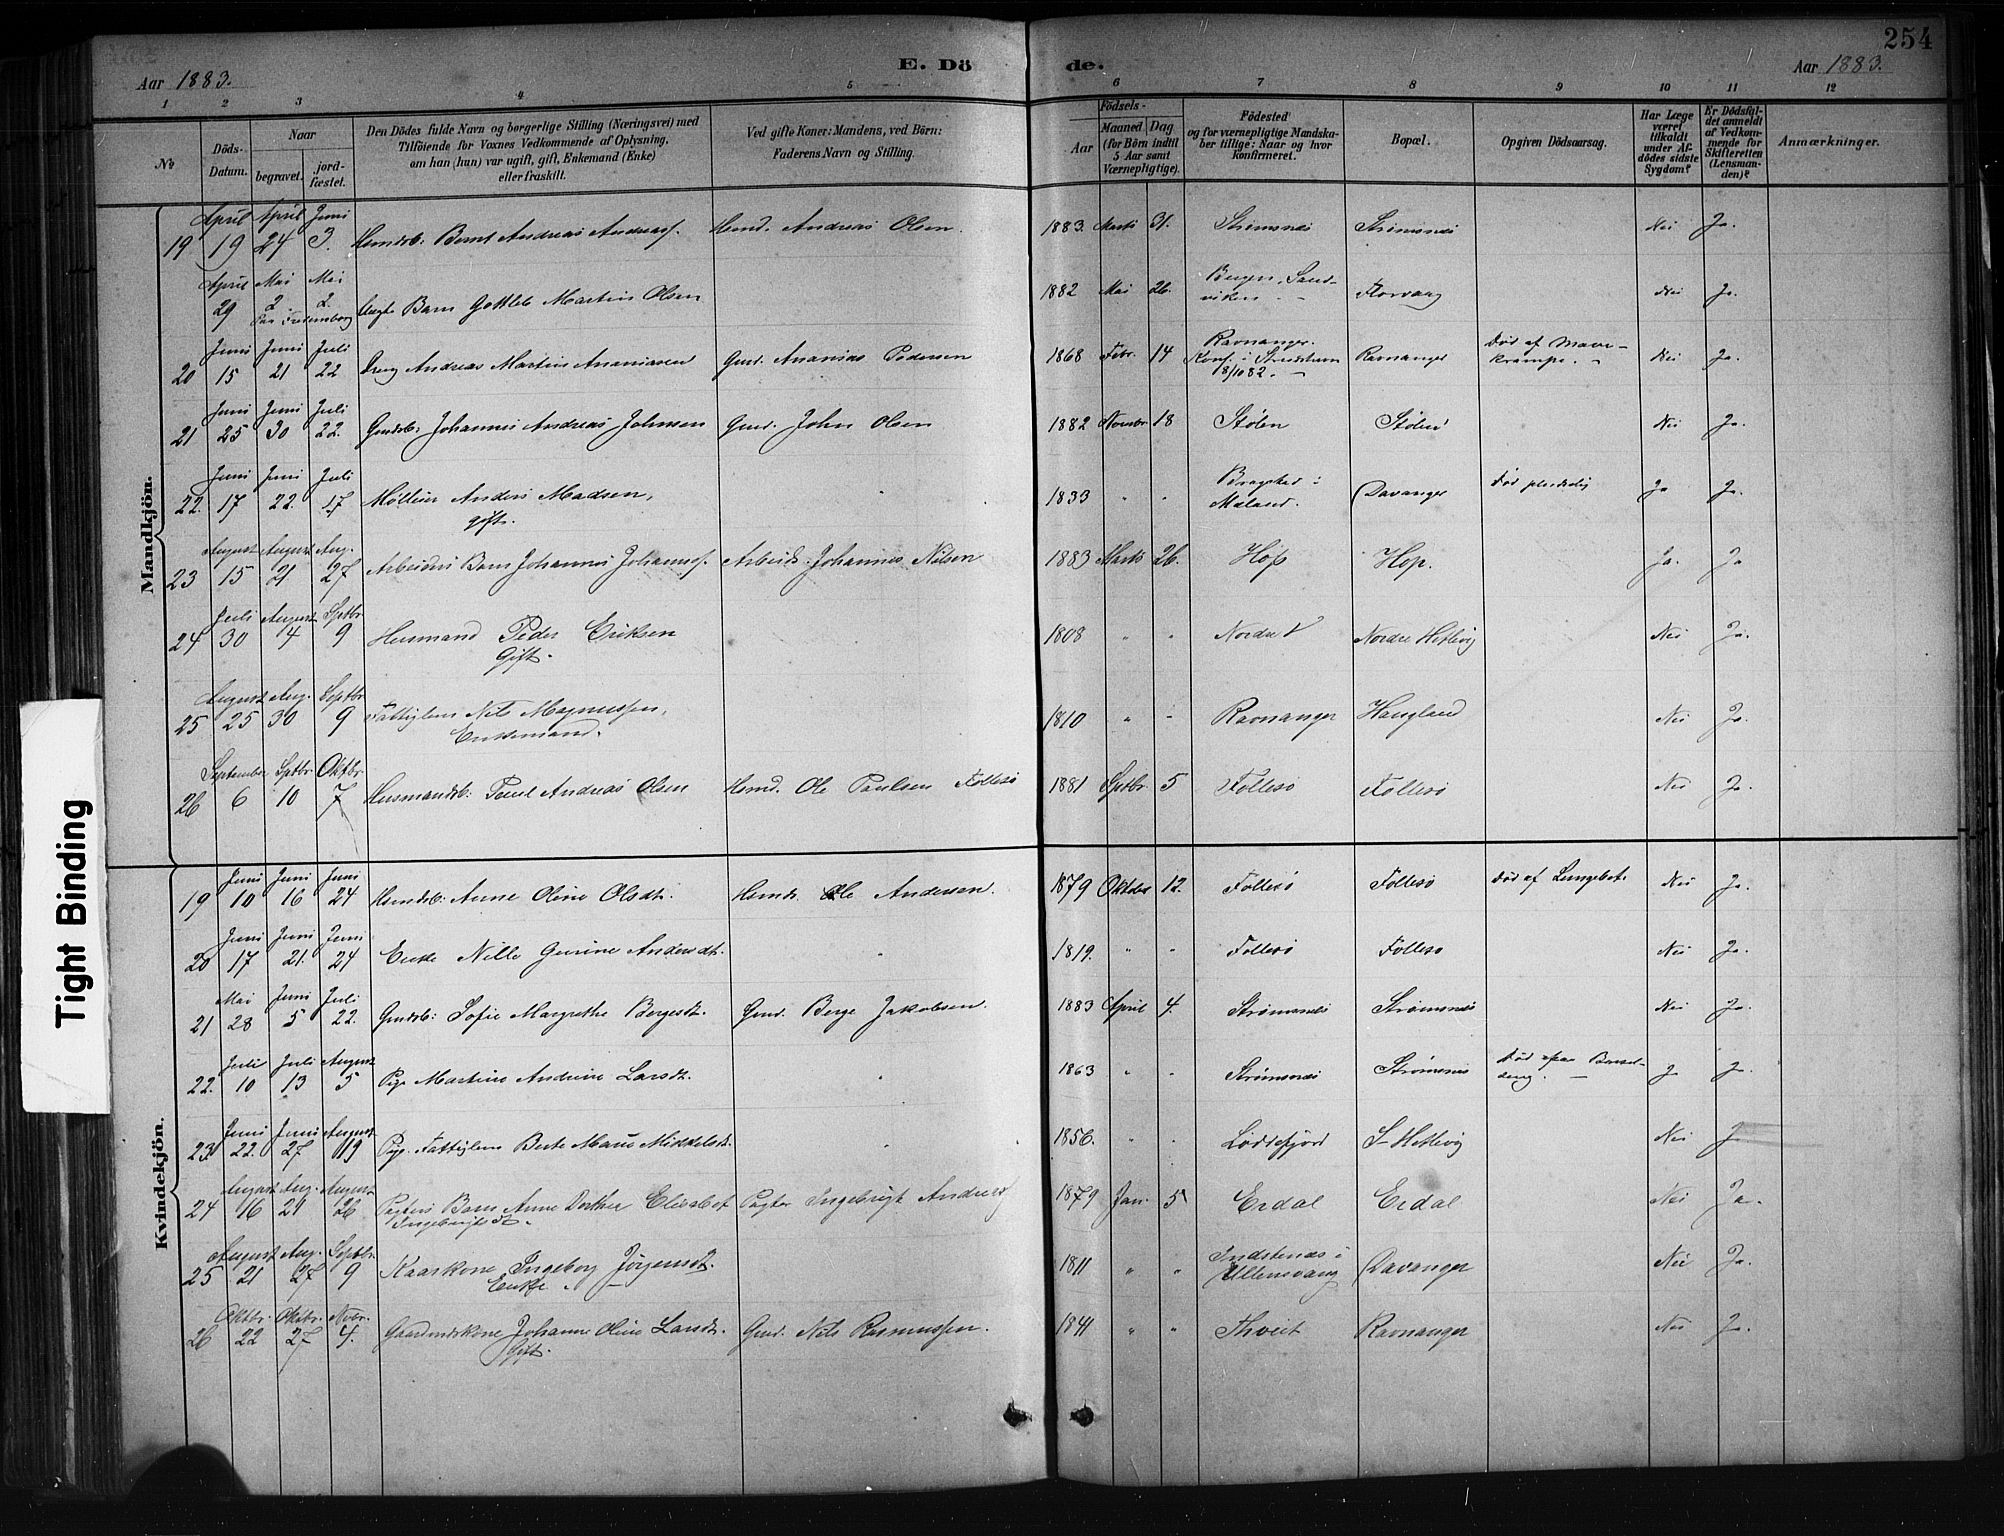 254
Aar 1883.
E. Dö
de.
Aar 1883.
1 2 3 4 5 6 7 8 9 10 11 12
No
Döds-Datum.
Naar
begravet.
jord-fæstet.
Den Dödes fulde Navn og borgerlige Stilling (Næringsvei) med
Tilföiende for Voxnes Vedkommende af Oplysning,
om han (hun) var ugift, gift, Enkemand (Enke)
eller fraskilt.
Ved gifte Koner: Mandens, ved Börn:
Faderens Navn og Stilling.
Födsels-
Aar
Maaned
Dag
(for Börn indtil
5 Aar samt
Værnepligtige).
Födested
og for værnepligtige Mandska-
ber tillige: Naar og hvor
konfirmeret.
Bopæl.
Opgiven Dödsaarsag.
Har Læge
været
tilkaldt
under Af-
dödes sidste
Sygdom?
Er Dödsfal-
det anmeldt
af Vedkom-
mende for
Skifteretten
(Lensman-
den)?
Anmærkninger.
Mandkjön.
19 April 19 April 24 Juni 3. Husmdsb: Bernt Andreas Andreass. Husmd. Andreas Olsen. 1883. Marts 31. Strømsnes Strømsnes Nei Ja.
April 29 Mai 2. Mai 2. Barn Gottleb Martin Olsen 1882 Mai 26. Bergen, Sand-
viken Florvaag Nei Ja.
20 Juni 15 Juni 21 Juli 22 Dreng Andreas Martin Ananiassen Gmd. Ananias Pedersen 1868 Febr. 14 Ravnanger.
Konf. i
8/10 82. Ravnanger Død af Mave-
krampe. Nei Ja.
21 Juni 25 Juni 30 Juli 22. Gmdsb: Johannes Andreas Johnsen Gmd. John Olsen 1882 Novbr. 18 Stølen Stølen Nei Ja.
22. Juni 17 Juni 22. Juli 17 Møller Anders Madsen,
gift. 1833 " " i
Meland. Davanger Død pludselig Ja Ja.
23 August 15 August 21 Aug. 27 Arbeiders Barn Johannes Johanness. Arbeid. Johannes Nilsen 1883 Marts 26. Hop Hop. Ja. Ja
24 Juli 30 August 4 Septbr 9 Husmand Peder Eriksen
Gift. 1808 " " Nordre Nordre Hetlevig Nei Ja.
25 August 25 Aug. 30 Septbr 9 Fattiglem Nils Magnussen,
Enkemand. 1810 " " Ravnanger Haugland Nei Ja.
26 September 6 Sptbr. 10 Oktbr. 7 Husmandsb: Poul Andreas Olsen Husmd. Ole Paulsen Follesø 1881 Sptbr. 5 Follesø Follesø Nei Ja.
Kvindekjön.
19 Juni 10 Juni 16 Juni 24 Husmdsb: Anne Oline Olsdt. Husmd. Ole Andersen. 1879 Oktober 12. Follesø Follesø Død af Lungebet. Nei Ja.
20 Juni 17 Juni 21. Juni 24 Enke Nille Gurine Andersdt. " 1819. " " Follesø Follesø Nei Ja.
21 Mai 28 Juni 5 Juli 22. Gmdsb: Sofie Margrethe Bergesdt. Gmd. Berge Jakobsen. 1883 April 4. Strømsnes Strømsnes Nei Ja.
22. Juli 10 Juli 13 August 5 Pige Martine Andrine Larsdt. " 1863 " " Strømsnes Strømsnes Død paa Barsel-
seng. J Ja.
23. Juni 22. Juni 27 August 19 Pige. Fattiglem Berte Marie Mikkelsdt. " 1856. " " Loddefjord S. Hetlevig Nei J
24 August 16 Aug. 21 August 26 Pagters Barn Anne Dorthea Elisabet
Ingebrigtsdt. Pagter Ingebrigt Anders 1879 Jan. 5 Erdal Erdal Nei Ja.
25 August 21 Aug. 27 Septbr. 9 Kaarkone Ingeborg Jørgensdt.
Enke. 1811 " " i
Ullensvang Davanger Nei Ja.
26 Oktbr. 22 Oktbr. 27 Nvbr. 4. Gaardmdskone Johanne Oline Larsdt.
Gift. Gmd. Nils Rasmussen. 1841 " " Thveit Ravnanger Nei Ja.
Tight Binding